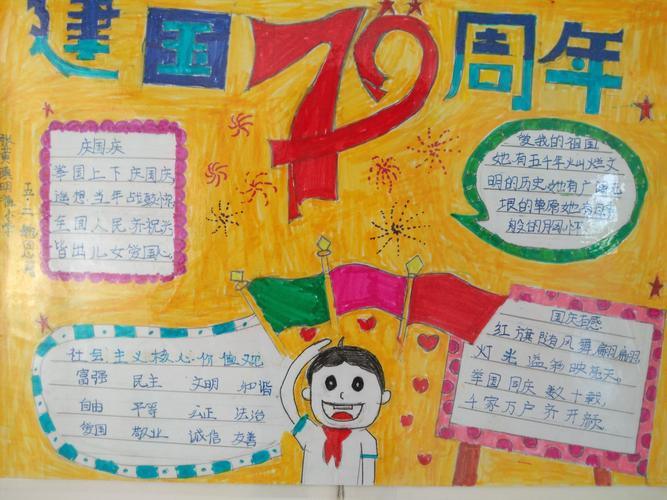 建国70周年
庆国庆
举国上下庆国庆
遥想当年战鼓惊
全国人民齐祝先
皆出儿女爱国心
爱我的祖国
她有五千年灿烂文
明的历史她有广
垠的草原她有
般的胸怀
五.二
社会主义核心价值观
富强 民主 文明 和谐
自由 平等 公正 法治
爱国 敬业 诚信 友善
国庆有感
红旗随风舞翩翩
灯光溢彩映乐天
举国同庆数十载
千家万户齐开颜